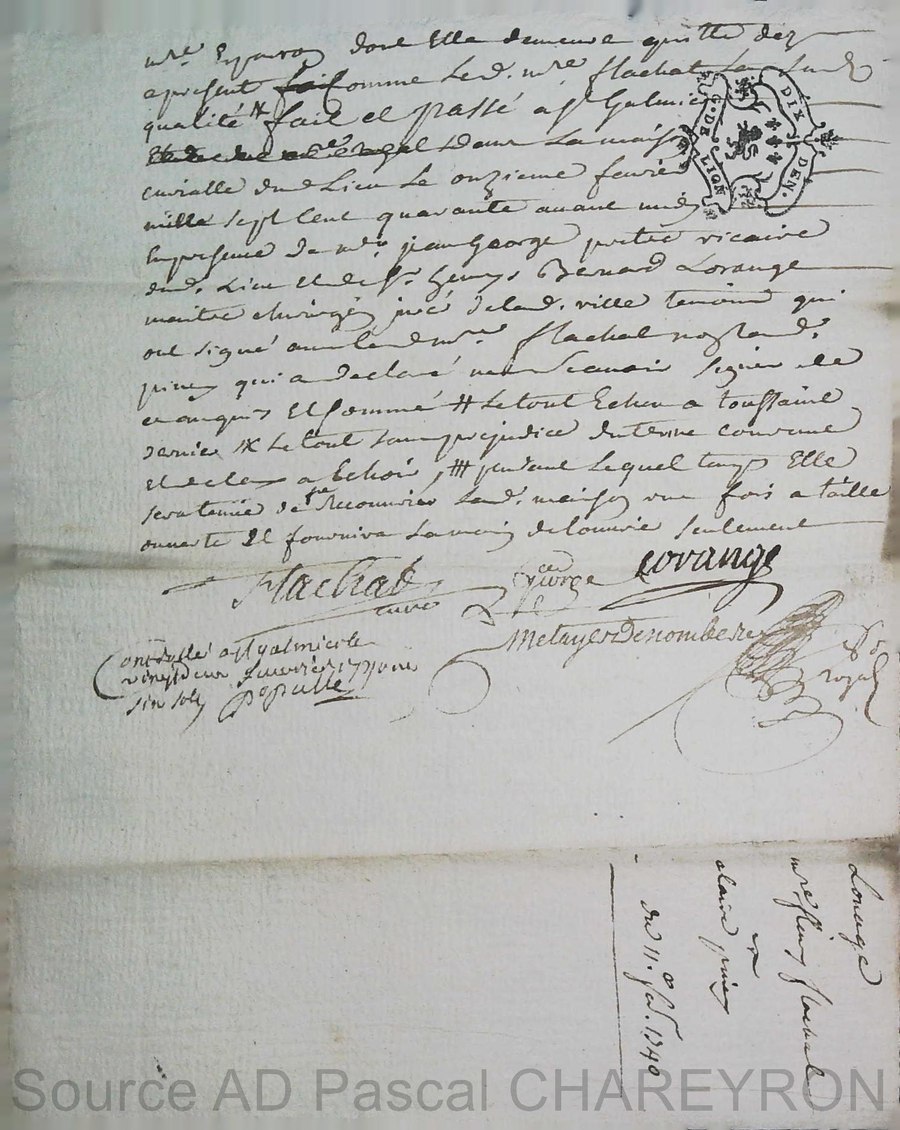 mre Eyparon dont Elle demeure quitte dez
apresent comme Led. mre flachat
qualité fait et passé a st Galmier
dans La maison
curialle dud Lieu Le onzieme fevrier
mille sept cent quarante avant midy
En presence de mre jean George pretre vicaire
dud. Lieu et de sr Bernard Lorange
maitre chirurgien juré de lad. ville temoins qui
ont signé avec led mre flachat non Lad.
piney qui a declaré ne scavoir signer de
ce enquis Et sommé # Le tout Echeu a toussaint
dernier * Le tout sans prejudice du terme courant
et de ceux a Echoir # pendant Lequel temps Elle
sera tenue de faire Recouvrir Lad. maison une fois a taille
ouverte Et fournira La main de louvrier seulement
Flachat
curé
George
vce
Lorange
Metayer Denombe
Royal
Controllé a st galmier le
vingt deux feuvrier 1740 Recu
six sols
populle
G. DE LION
DIX DEN.
Louage
mre fleury flachat
a
claire piney
du 11.e fev. 1740
Source AD Pascal CHAREYRON